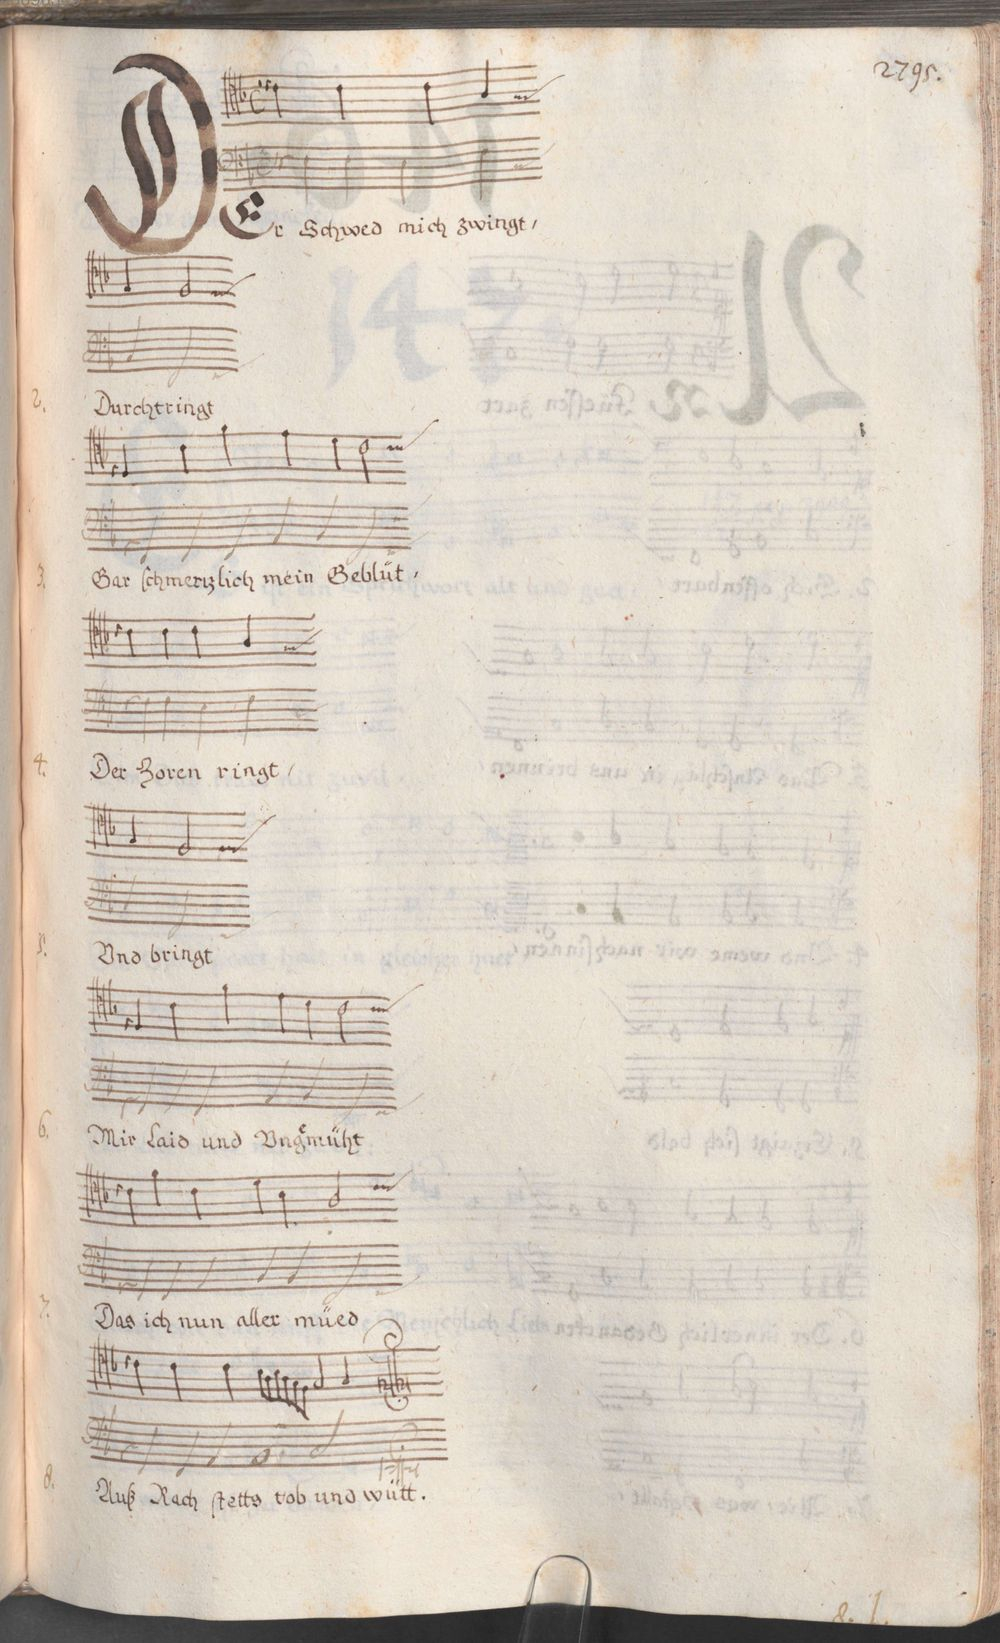 2795.
Der Schwed mich zwingt,
2. Durchtringt
3. Gar schmertzlich mein Geblüt,
4. Der Zoren ringt,
5. Vnd bringt
6. Mir Laid und Vngmüht
7. Das ich nun aller müed
8. Auß Rach stetts tob und wütt.
8. 1.